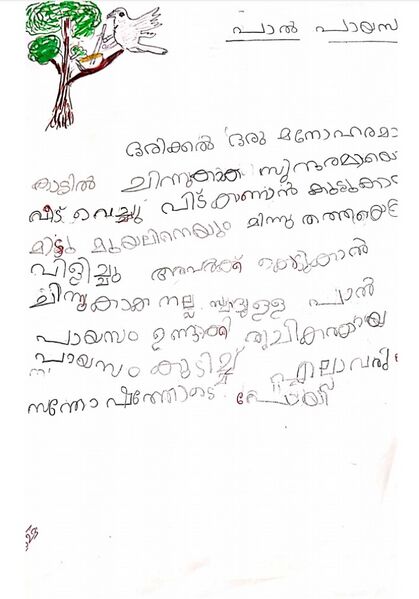 പാൽ പായസ
ഒരിക്കൽ ഒരു മനോഹരമാ
കാട്ടിൽ ചിന്നുകാക്ക സുന്ദരമായ
വീട് വെച്ചു വീട് കാണാൻ കൂട്ടുകാ
മിട്ടു മുയലിനെയും മിന്നു തത്തയെ
വിളിച്ചു അവർക്ക് കൊടുക്കാൻ
ചിന്നുകാക്ക നല്ല സ്വാദുള്ള പാൽ
പായസം ഉണ്ടാക്കി രുചികരമായ
പായസം കുടിച്ച് എല്ലാവരും
സന്തോഷത്തോടെ പോയി